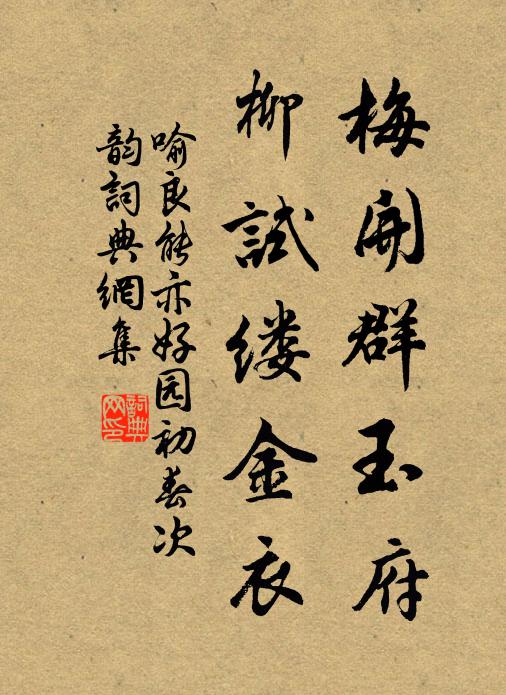 梅開群玉府
柳試缕金衣
喻良能亦好园初春次
韵詞典網集
詞典
网印